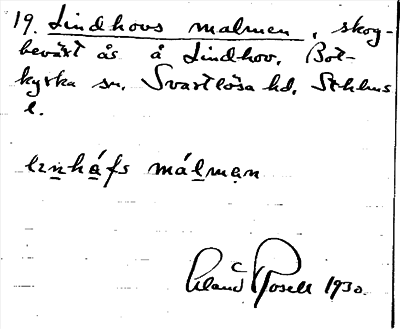 19. Lindhovs malmen, skog-
beväxt ås å Lindhov, Bot-
kyrka sn. Svartlösa hd, Sthlms
l.
lınháfs málmən
Erland Rosell 1930.